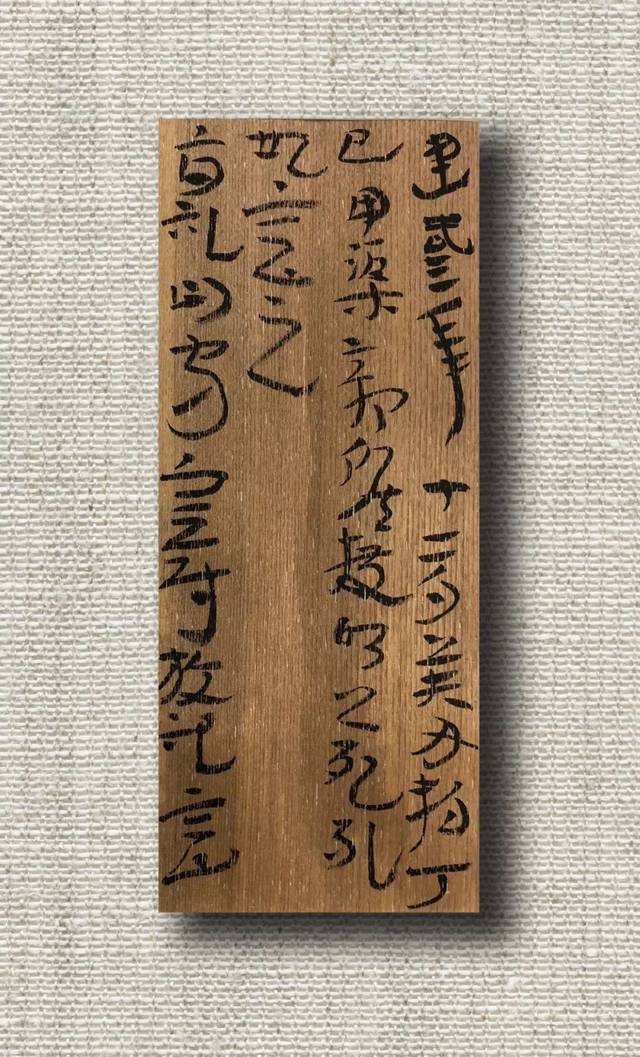 建武三年十二月癸丑朔丁
巳甲渠鄣候獲叩頭死罪
敢言之
府記曰守塞尉放記言